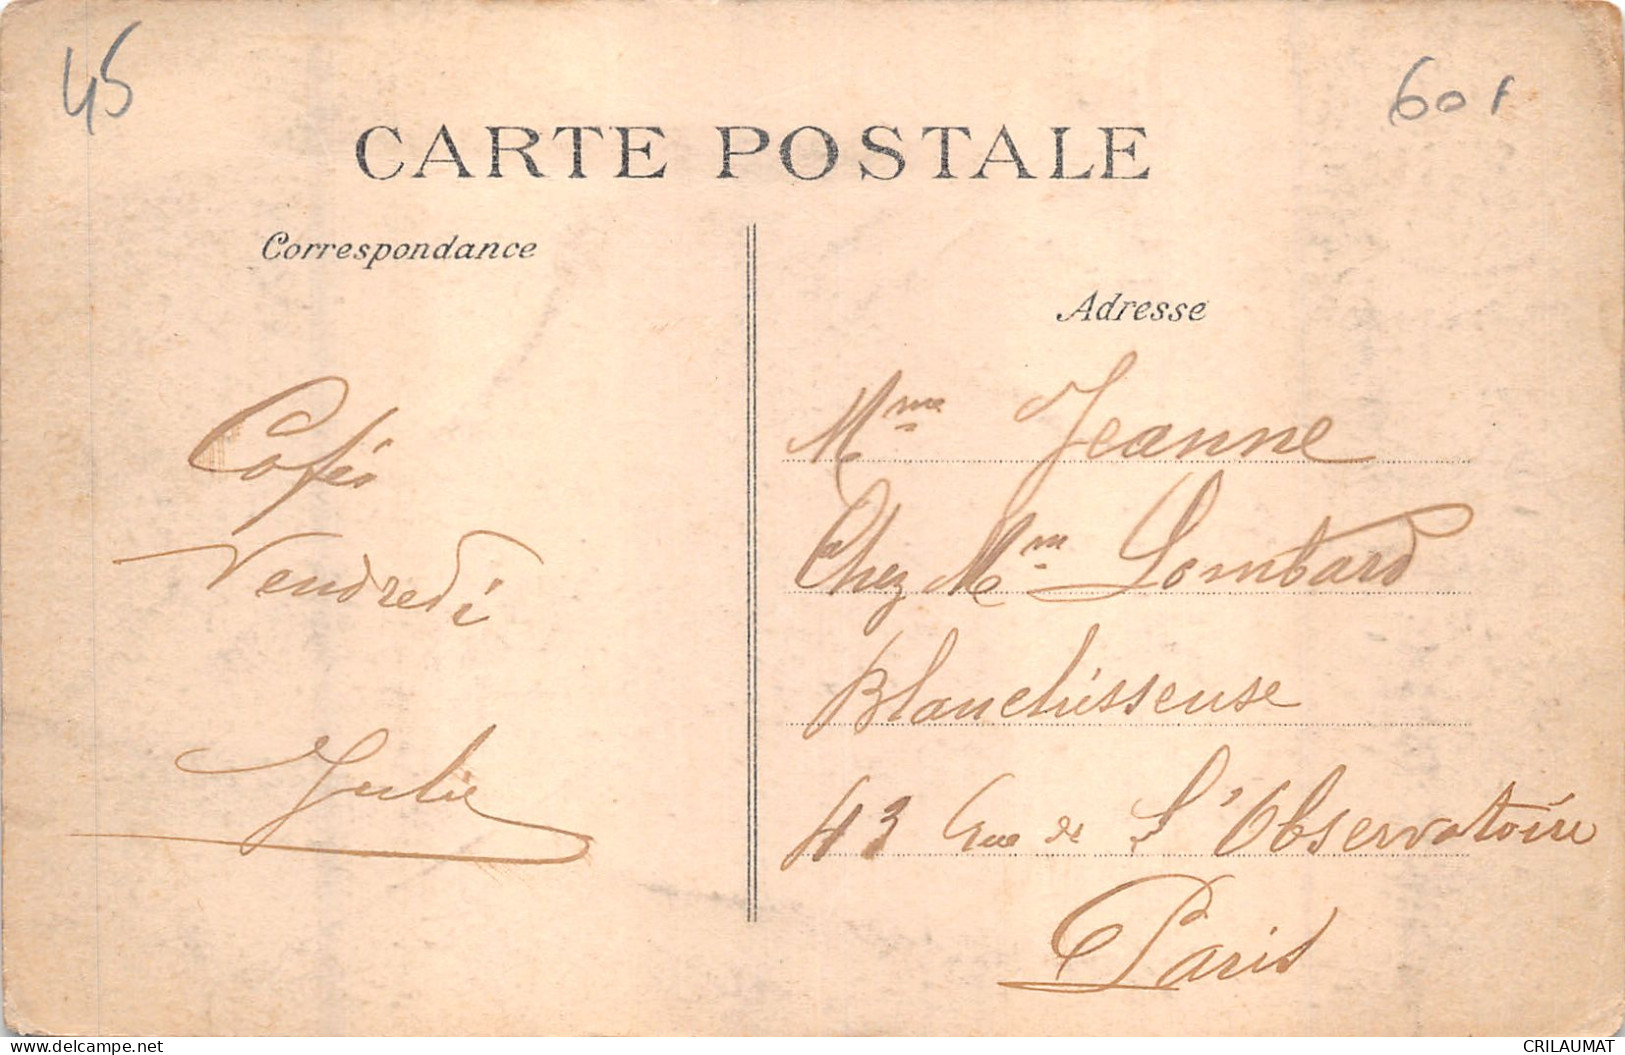 45
60f
CARTE POSTALE
Correspondance
Cafés
Vendredi
Julie
Adresse
Mme Jeanne
Chez Mme Lombard
Blanchisseuse
43 Rue de L'Observatoire
Paris
CRILAUMAT